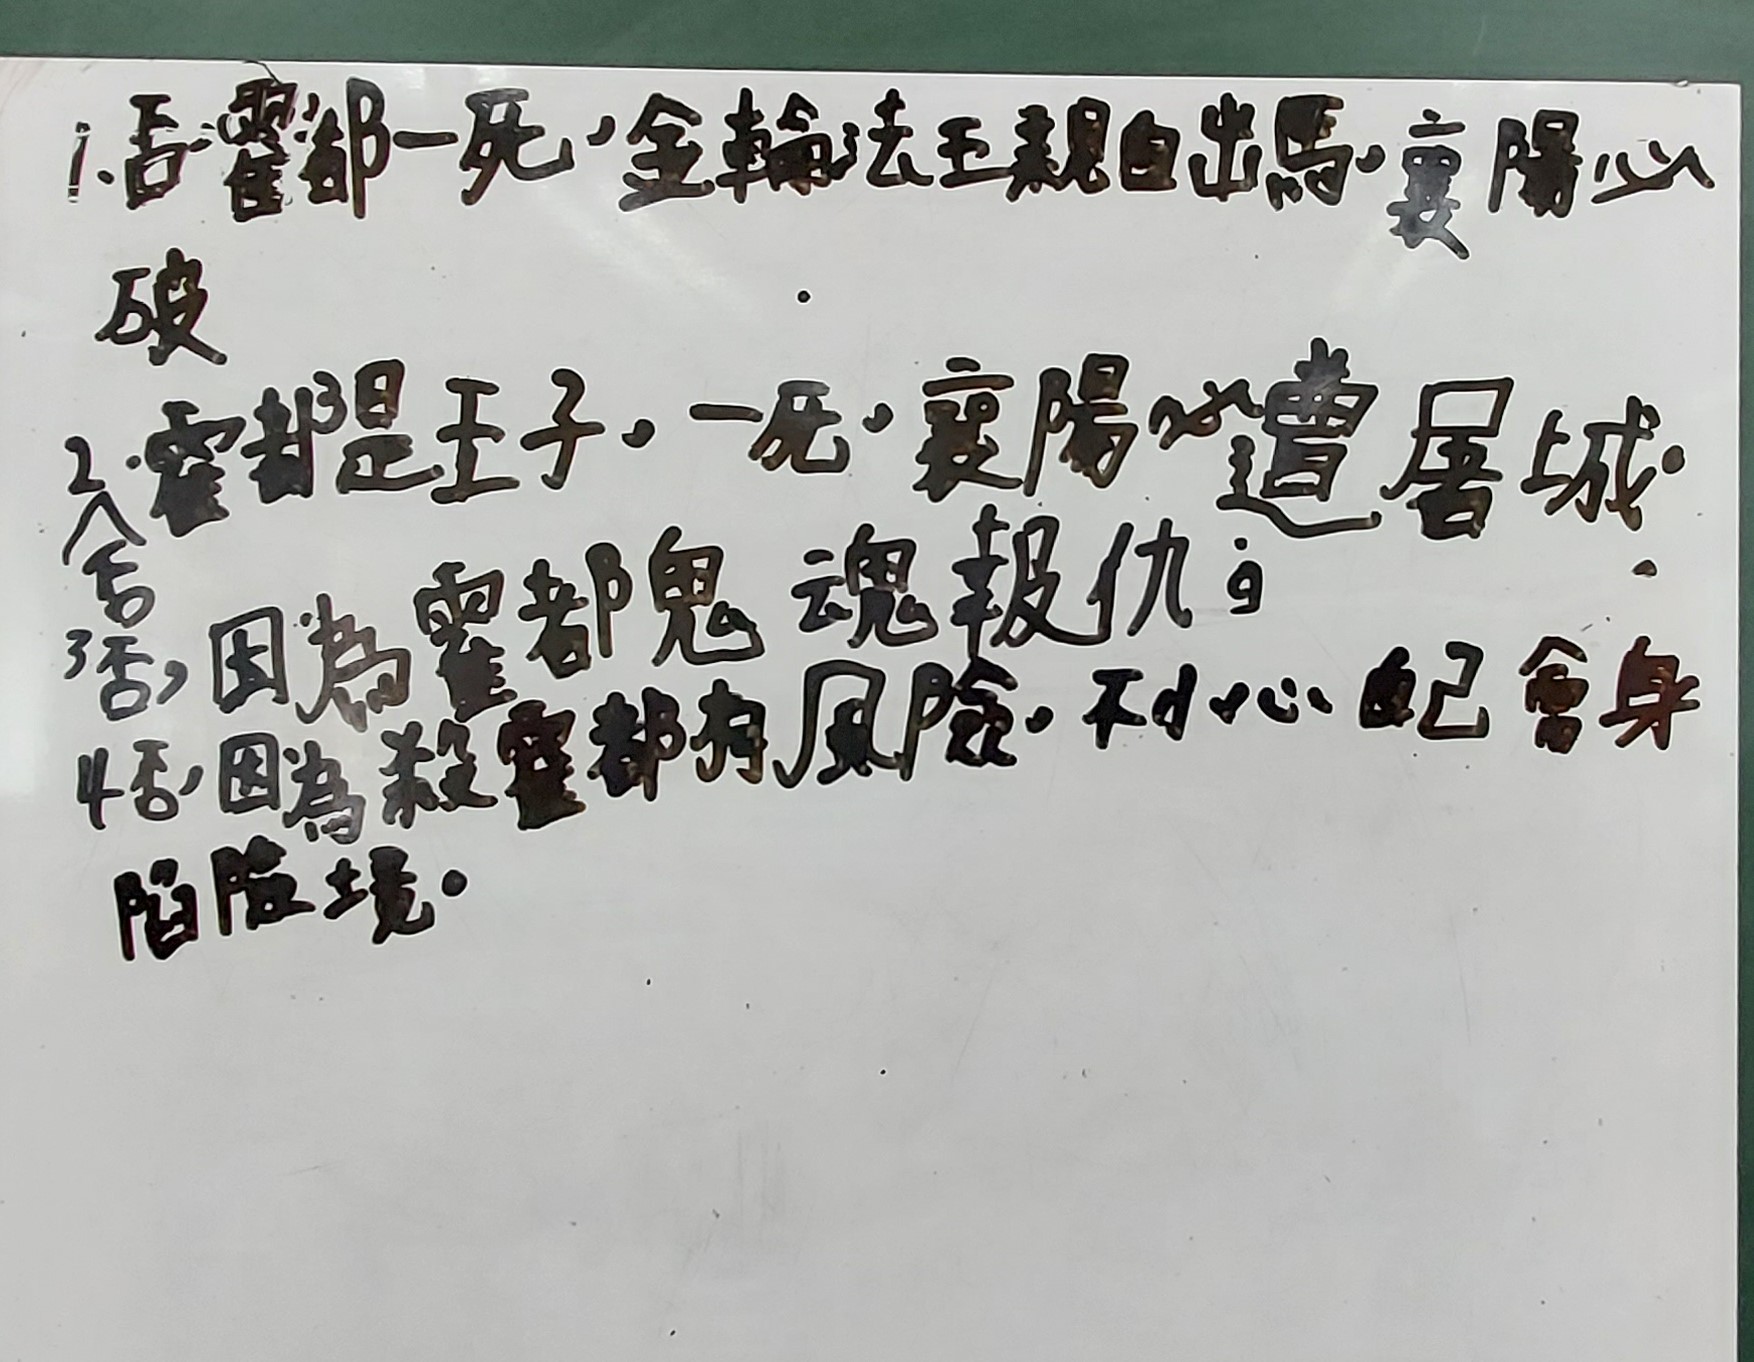 1.否.霍都一死,金輪法王親自出馬,襄陽必
破
2.霍都是王子,一死,襄陽必遭屠城.
否
3否,因為霍都鬼魂報仇;
4否,因為殺霍都有風險,不小心自己會身
陷險境.